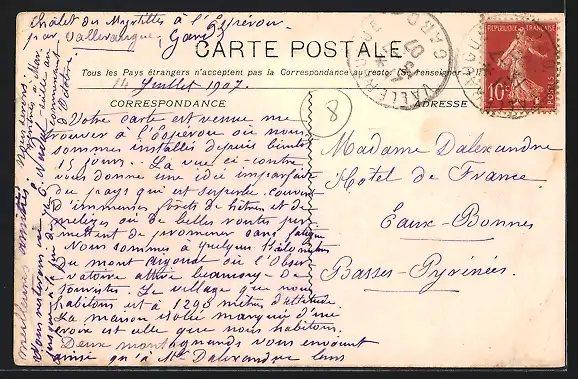 Châlet des Myrtilles à l'Espérou
par Valleraugue, Gard
CARTE POSTALE
Tous les Pays étrangers n'acceptent pas la Correspondance au recto. (Se renseigner
14 Juillet 1907.
CORRESPONDANCE
ADRESSE
8
VALLERAUGUE
GARD
07
POSTES
10
Votre carte est venue me
trouver à l'Espérou où nous
sommes installés depuis bientôt
15 jours. La vue ci-contre
vous donne une idée imparfaite
du pays qui est superbe, couvert
d'immenses forêts de hêtres et de
mélèzes où de belles routes per
mettent de promener sans fatigue
Nous sommes à quelques kilomètres
du mont Aigoual où l'Obser
vatoire attire beaucoup de
touristes. Le village que nous
habitons est à 1293 mètres d'altitude.
La maison isolée marquée d'une
croix est celle que nous habitons.
Deux montagnards vous envoient
ainsi qu'à Mr Dalexandre leurs
meilleures amitiés
Madame Dalexandre
Hôtel de France
Eaux-Bonnes
Basses-Pyrénées.